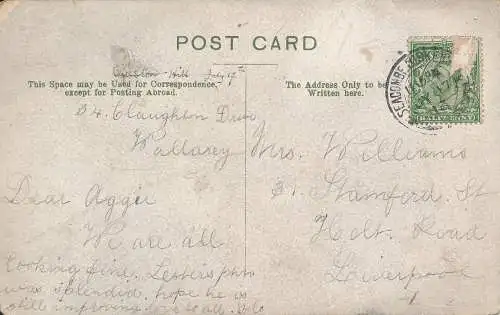 POST CARD
July 17th
This Space may be Used for Correspondence,
except for Posting Abroad.
The Address Only to be
Written here.
34. Claughton Drive
Wallasey
Dear Aggie
We are all
looking fine. Leslie's photo
was splendid. hope he is
still improving love to all.
Mrs. Williams
31. Stamford. St
Holt. Road
Liverpool
SEACOMBE
HALFPENNY